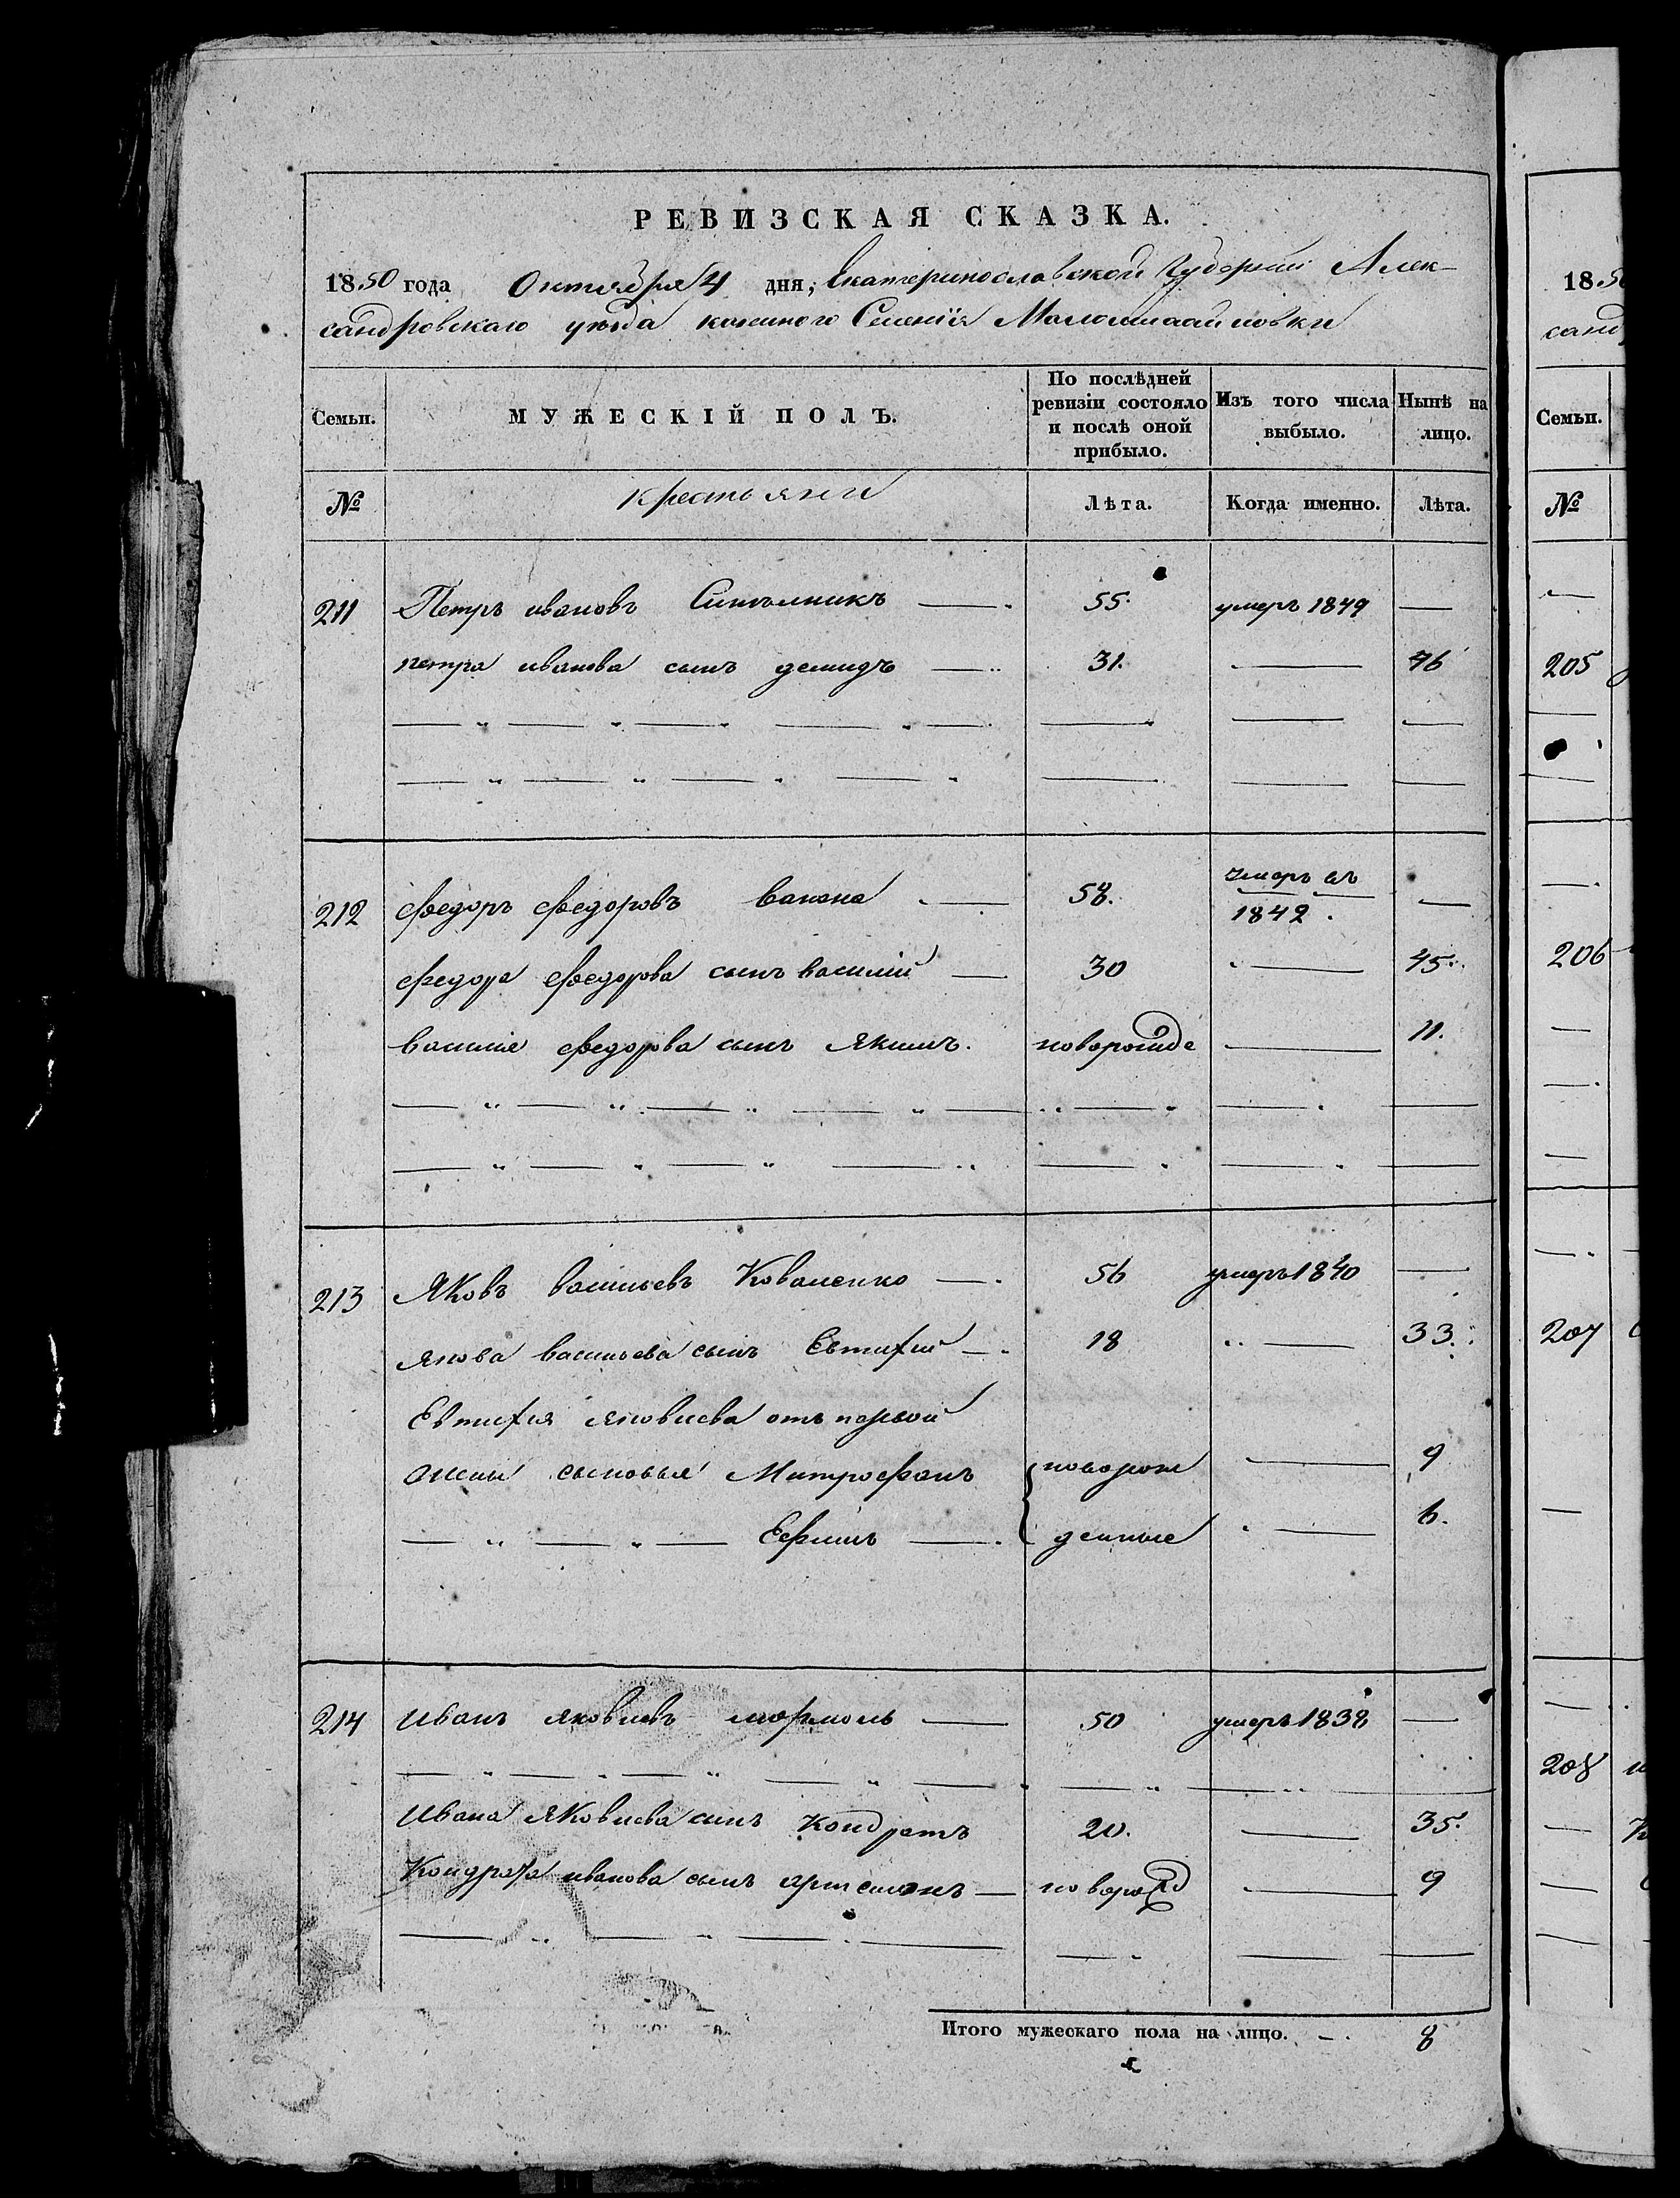 РЕВИЗСКАЯ СКАЗКА.
1850 года Октября 4 дня, Екатеринославской Губерніи Алек-
сандровскаго уѣзда казенного Селенія Маломихайловки
Семьи. МУЖЕСКІЙ ПОЛЪ. По послѣдней ревизіи состояло и послѣ оной прибыло. Изъ того числа выбыло. Нынѣ на лицо.
№ крестьяне Лѣта. Когда именно. Лѣта.
211 Петръ ивановъ 55. умеръ 1849 —
петра иванова сынъ демидъ — 31. — 46
212 Федоръ федоровъ — 58. умеръ въ 1842. —
федора федорова сынъ василій — 30 — 45.
василія федорова сынъ якимъ. новорожде — 11.
213 Яковъ васильевъ Коваленко — 56 умеръ 1840 —
якова васильева сынъ Евтифій — 18 — 33.
Евтифія яковлева отъ первой
жены сыновья Митрофанъ новорож — 9
Ефимъ — денные — 6.
214 иванъ яковлевъ — 50 умеръ 1838 —
ивана яковлева сынъ Кондратъ 20. — 35.
Кондрата иванова сынъ — новорожд — 9
Итого мужескаго пола на лицо. — 8
18
санд
Семьи.
№
205
206
207
208